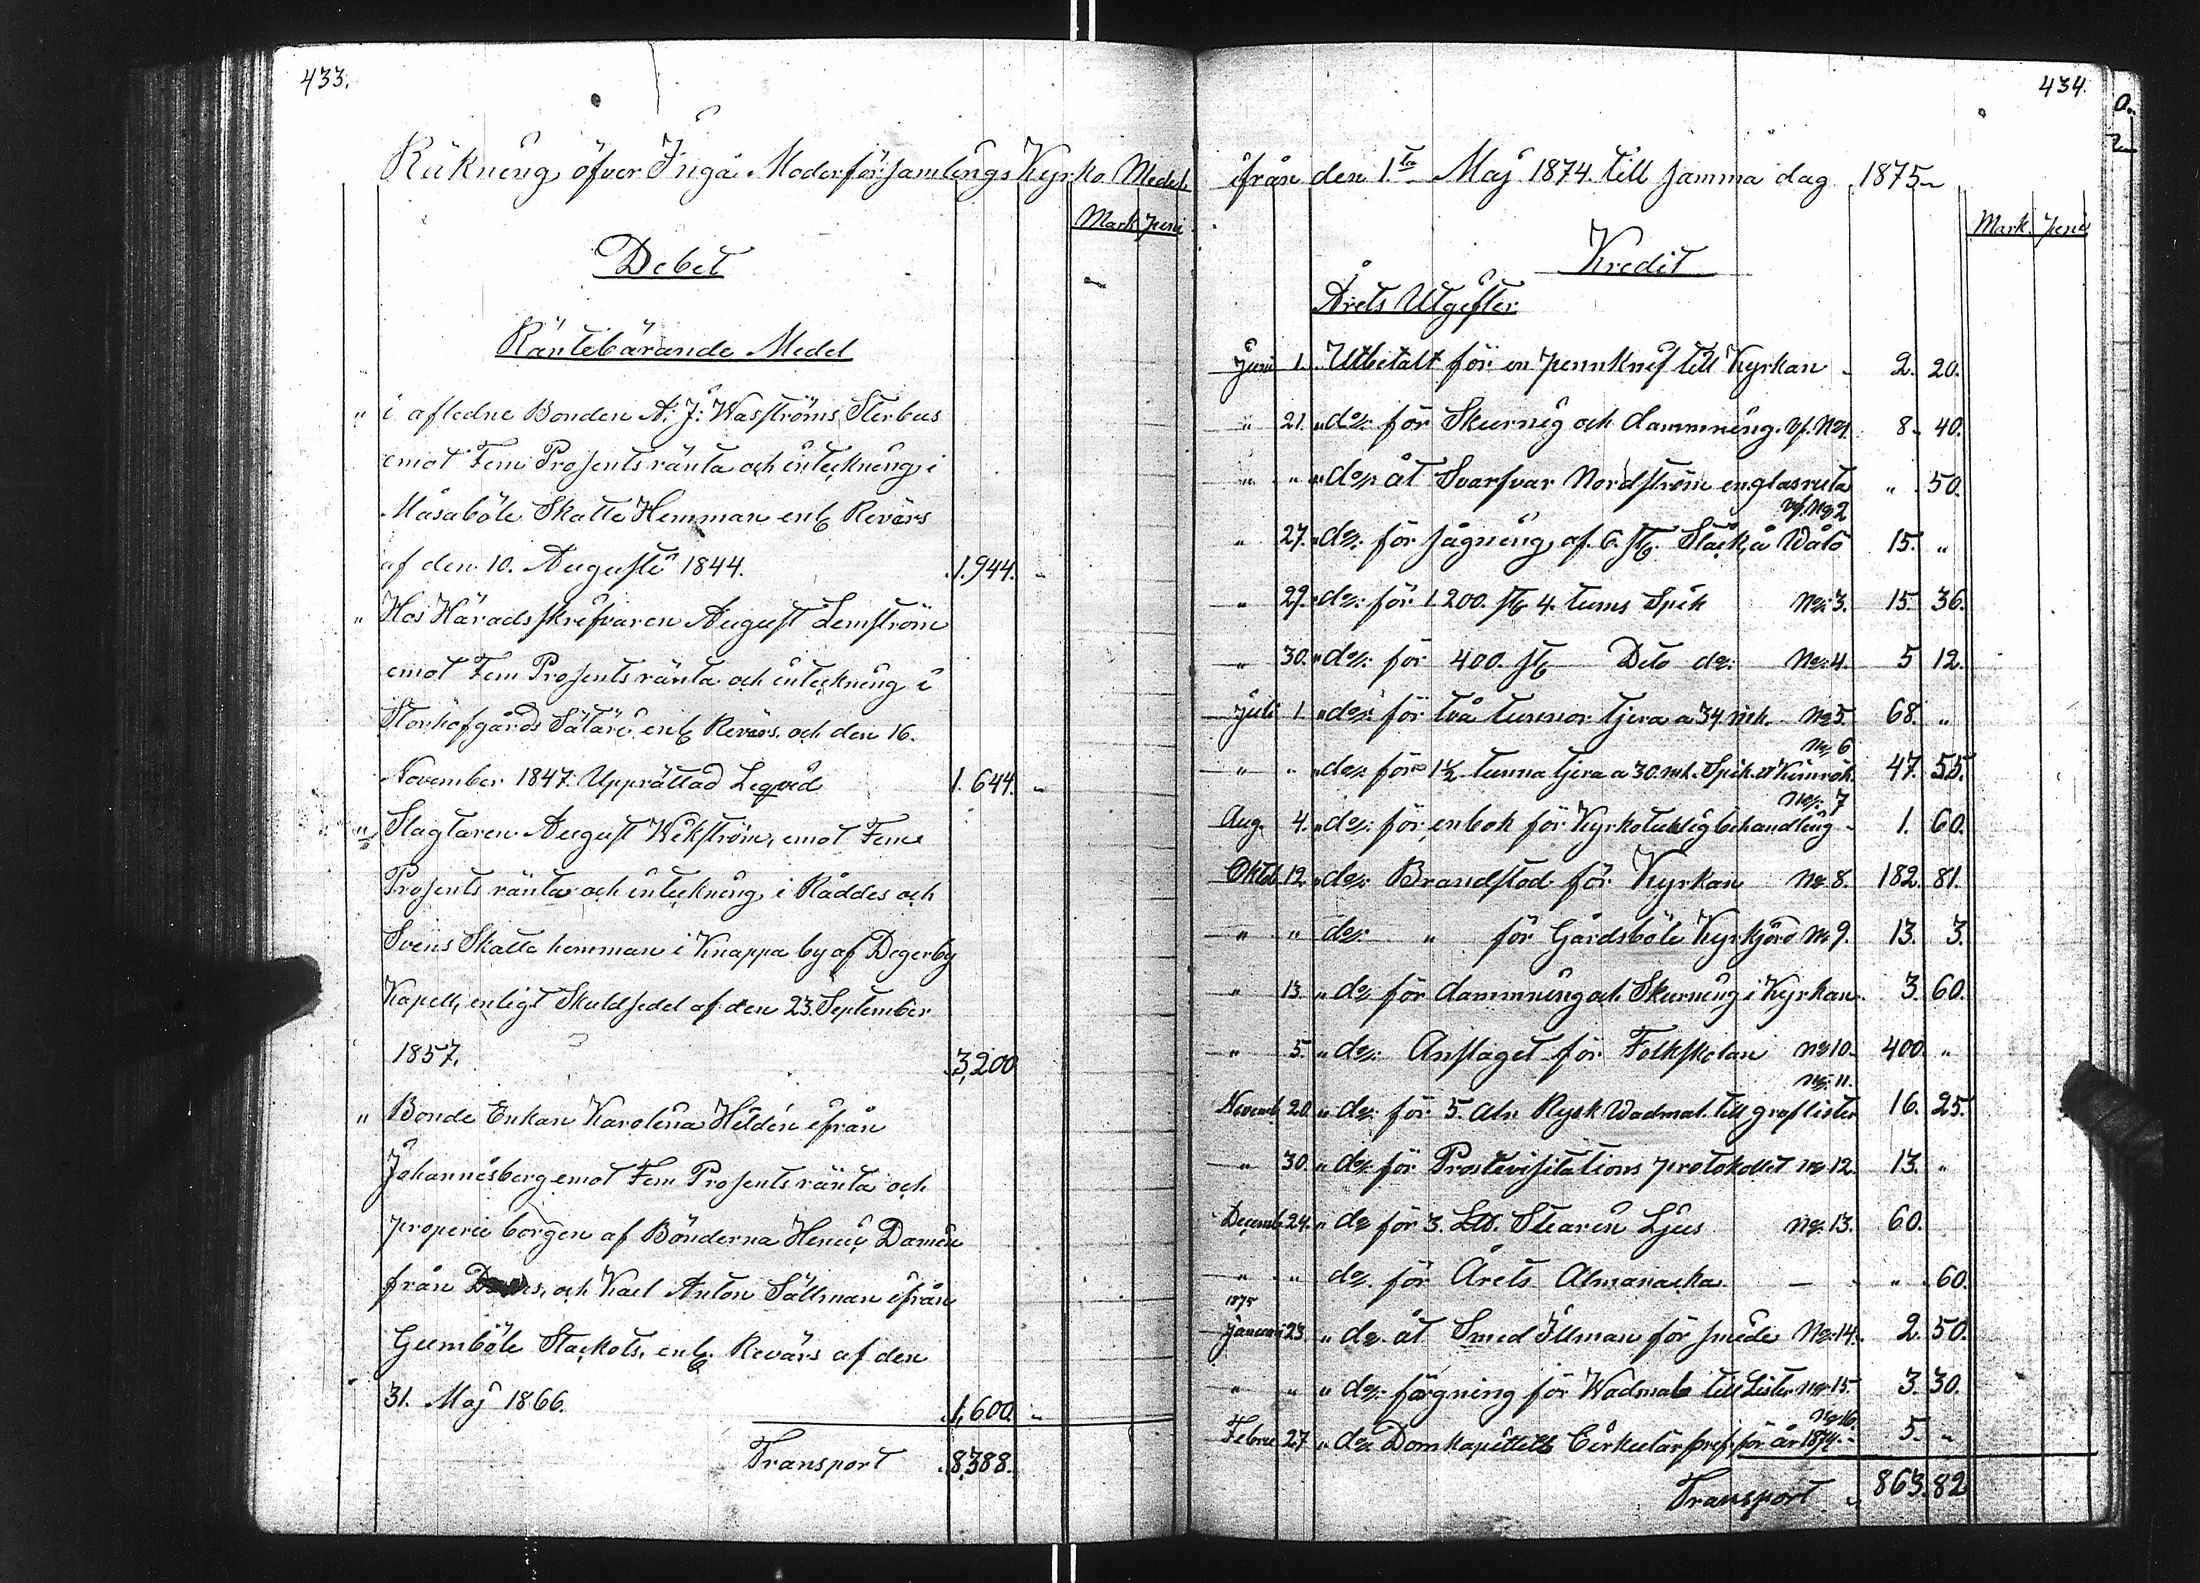 433.
Räkning öfver Ingå Moderförsamlings Kyrko Medel
Mark peni
Debet
Räntebärande Medel
" i aflidne Bonden A: J: Wasströms Sterbus
emot Fem Prosents ränta och inteckning i
Måsaböle Skatte Hemman enl. Revärs
af den 10. Augusti 1844. 1,944. "
" Hos Häradsskrifvaren August Lemström
emot Fem Prosents ränta och inteckning i
Storhofgårds Säteri enl. Revärs och den 16.
November 1847. Upprättad Leqvid 1.644. "
" Slagtaren August Wikström, emot Fem
Prosents ränta och inteckning i Räddes och
Svens Skatte hemman i Knappa by af Degerby
Kapell, enligt Skuldsedel af den 23. September
1857. 3,200
" Bonde Enkan Karolina Hildén ifrån
Johannesberg emot Fem Prosents ränta och
properie borgen af Bönderna Henric Damén
från och Karl Anton Sällman ifrån
Gumböle Stackots, enl. Revärs af den
31. Maj 1866. 1,600. "
Transport 8,388.
434.
ifrån den 1.ta Maj 1874. till samma dag 1875
Mark. peni
Kredit
Årets Utgifter
Juni 1. Utbetalt för en pennknif till Kyrkan 2. 20.
" 21. " do: för Skurnig och dammning. vf. No 1. 8. 40.
" " " do: åt Svarfvar Nordström en glasruta " 50.
vf. No 2
" 27. " do: för sågning af 6. st. Stäck, å Wålö 15. "
" 29. " do: för 1200. st. 4. tums Spik No: 3. 15. 36.
" 30. " do: för 400. st. Dito do: No: 4. 5 12.
Juli 1 " do: för två tunnor tjera a 34 mk. No 5. 68. "
No: 6
" " " do: för 1½ tunna tjera a 30. mk. Spik. o Kimrök. 47. 55.
No: 7
Aug. 4. " do: för en bok för Kyrkotucktig behandling 1. 60.
Oktob 12. " do: Brandstod för Kyrkan No 8. 182. 81.
" " do: " för Gårdsböle Kyrkjord No 9. 13. 3.
" 13. " do för damning och Skurning i Kyrkan. 3. 60.
" 5. " do: Anslaget för Folkskolan No 10. 400. "
No: 11.
Novemb. 20. " do: för 5. aln Rysk Wadmal till graflister 16. 25.
" 30. " do: för Prostevisitations protokollet No 12. 13. "
Decemb. 24. " do för 3. L℔. Stearin Ljus No: 13. 60.
" " do: för Årets Almanacka " 60.
1875
Januari 23. " do. åt Smed Illman för smide No: 14. 2. 50.
" " " do: färgning för Wadmal till Lister No 15. 3. 30.
No 16.
Febru 27 " do: Domkapittels Cirkulär bref för år 1874. 5. "
Transport 863. 82